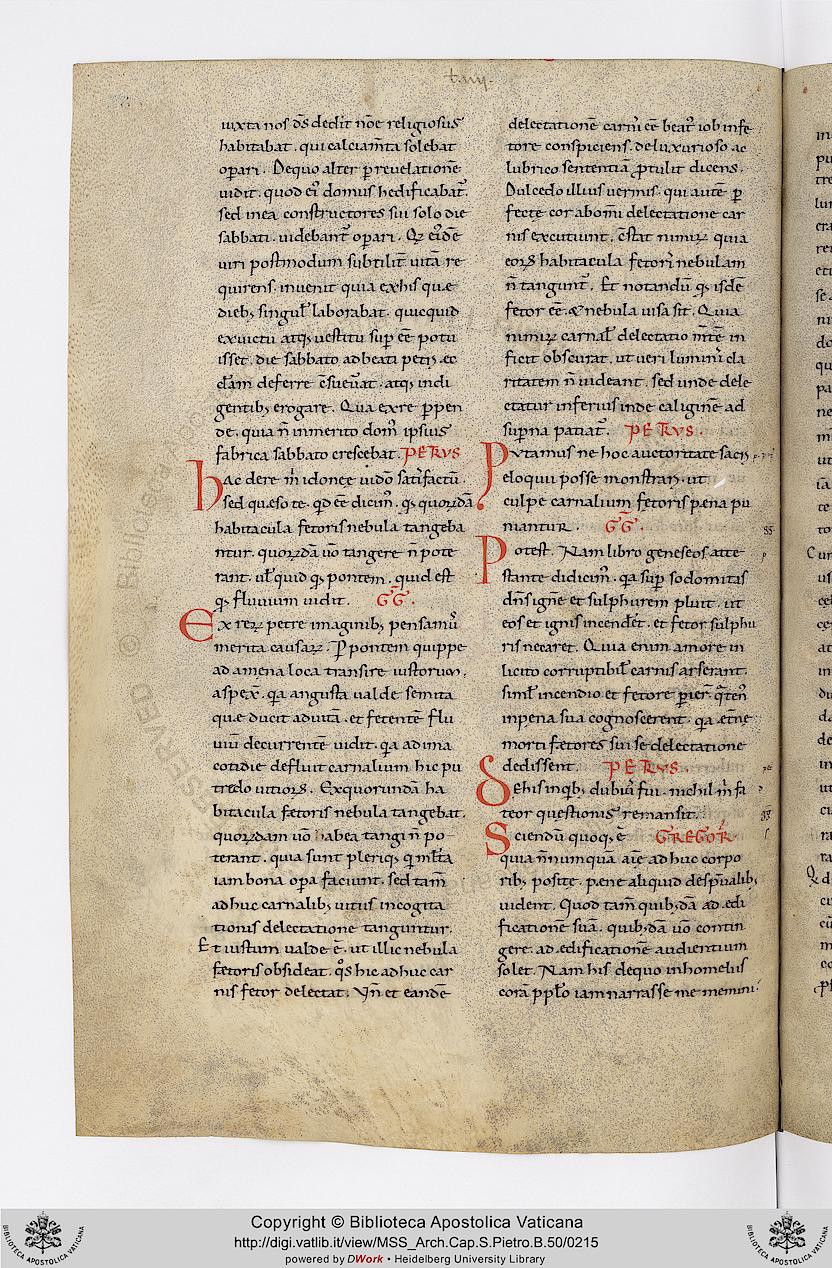 iuxta nos d̄s dedit nōe religiosus
habitabat. qui calciam̄ta solebat
op̄ari. De quo alter p̄ revelationē
uidit. quod ei᷒ domus hedificabat᷒.
sed in ea constructores sui solo die
sabbati. uidebant᷒ op̄ari. Q̄ ei᷒dē
uiri postmodum subtilit̄ uitā re
quirens. inuenit quia ex his quę
dieb; singul̄ laborabat. quicquid
ex uictu atq; uestitu sup̄ ēē potu
isset. die sabbato ad beati petri ec
cl̄am deferre c̄sueu̅at. atq; indi
gentib; erogare. Qua ex re p̄pen
de. quia n̄ inmerito dom᷒ ipsius
fabrica sabbato crescebat. PETRVS
hac de re m̄ idonee uidō satisfactū.
sed quęso te. qd̄ eē dicim᷒. q; quorꝝdā
habitacula fetoris nebula tangeba
ntur. quorꝝdā ūo tangere n̄ pote
rant. ul̄ quid q; pontem. quid est
q; fluuium uidit. GḠ.
Ex rerꝝ petre imaginib; pensam᷒
merita causarꝝ. P̄ pontem quippe
ad amena loca transire iustos
aspex̄. q̄a angusta ualde semita
quę ducit ad uitā. et fetentē flu
uiū decurrentē uidit. q̄a ad ima
cotidie defluit carnalium hic pu
tredo uitiorꝝ. Ex quorundā ha
bitacula fætoris nebula tangebat.
quorꝝdam ūo habea tangi n̄ po
terant. quia sunt pleriq; q̄ ml̄ta
iam bona op̄a faciunt. sed tam̄
adhuc carnalib; uitiis in cogita
tionis delectatione tanguntur.
Et iustum ualde ē. ut illic nebula
fætoris obsideat. q̄s hic adhuc car
nis fetor delectat. Vn̄ et eandē
delectationē carnis ēē beat᷒ iob in fe
tore conspiciens. de luxurioso ac
lubrico sententiā p̄tulit dicens.
Dulcedo illius uermis. qui autē p̄
fecte cor ab om̄i delectatione car
nis excutiunt. c̄stat nimirꝝ quia
eorꝝ habitacula fetoris nebulam
n̄ tangunt᷒. Et notandū q; isdē
fetor ēē & nebula uisa sit. Quia
nimirꝝ carnal̄ delectatio m̄tē in
ficit obscurat. ut ueri luminis cla
ritatem n̄ uideant. sed unde dele
ctatur inferius inde caliginē ad
sup̄na patiat᷒. PETRVS.
Putamus ne hoc auctoritate sacri
eloquii posse monstrari. ut
culpe carnalium fetoris pęna pu
niantur. GḠ.
Potest. Nam libro geneseos atte
stante didicim᷒. q̄a sup̄ sodomitas
dn̄s ignē et sulphurem pluit. ut
eos et ignis incendet̄. et fetor sulphu
ris necaret. Quia enim amore in
licito corruptibil̄ carnis arserant.
siml̄ incendio et fetore p̄ier̄. q̄ten᷒
in pena sua cognoscerent. q̄a etn̄ę
morti fætores sui se delectatione
dedissent. PETRVS.
De his in qb; dubiu᷒ fui. nichil m̄ fa
teor questionis remansit.
Sciendū quoq; ē GREGOR᷒
quia n̄numquā aīe adhuc corpo
rib; posite. pęne aliquid de sp̄ualib;
uident. Quod tam̄ quib;dā ad ędi
ficationē suā. quib;dā ūo contin
gere. ad ędificationē audientium
solet. Nam his de quo in homeliis
corā pp̄lo iam narrasse me memini.
Copyright © Biblioteca Apostolica Vaticana
http://digi.vatlib.it/view/MSS_Arch.Cap.S.Pietro.B.50/0215
powered by DWork • Heidelberg University Library